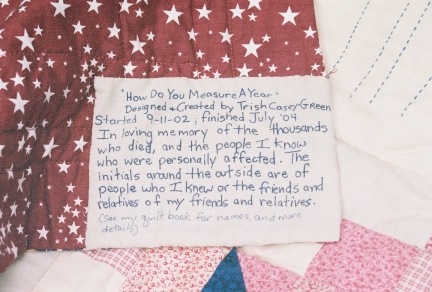 "How Do You Measure A Year"
Designed & Created by Trish Casey-Green
Started 9-11-02; finished July '04
In loving memory of the thousands
who died, and the people I know
who were personally affected. The
initials around the outside are of
people who I knew or the friends and
relatives of my friends and relatives.
(See my quilt book for names, and more
details)